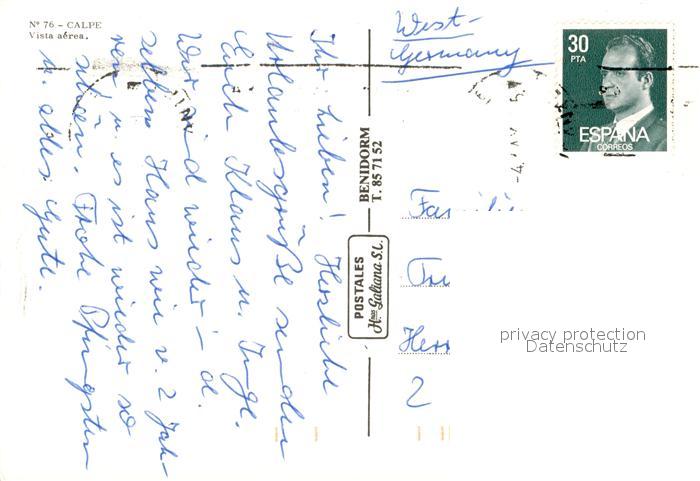 Nº 76 - CALPE
Vista aérea.
Ihr Lieben! Herzliche
Urlaubsgrüße senden
Euch Klaus u. Inge.
Wir sind wieder i- d.
selben Haus wie v. 2 Jah-
ren u. es ist wieder so
schön. Frohe Pfingsten
u. alles Gute.
BENIDORM
T. 85 71 52
POSTALES
Hnos Galiana S.L.
West-
Germany
30
PTA
ESPAÑA
CORREOS
Herr
2
privacy protection
Datenschutz